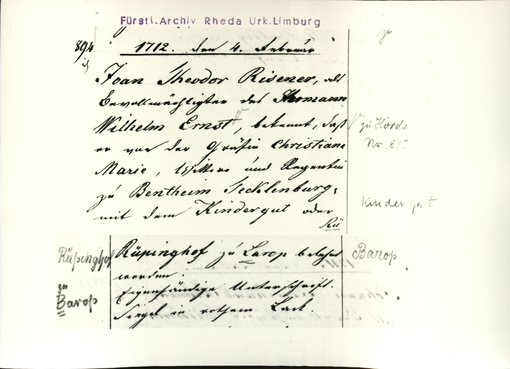 Fürstl. Archiv Rheda Urk. Limburg
894
1712. den 4. Februar
Joan Theodor Risener, als
Bevollmächtigter des Thomann
Wilhelm Ernst, bekennt, daß
er von der Gräfin Christiane
Marie, Wittwe und Regentin
zu Bentheim Tecklenburg,
mit dem Kindergut oder
Rü
zu Hörde
Nr. 895
Kindergut
Rüpinghof
zu
Barop
Rüpinghof zu Barop belehnt
worden.
Eigenhändige Unterschrift.
Siegel in rothem Lack.
Barop